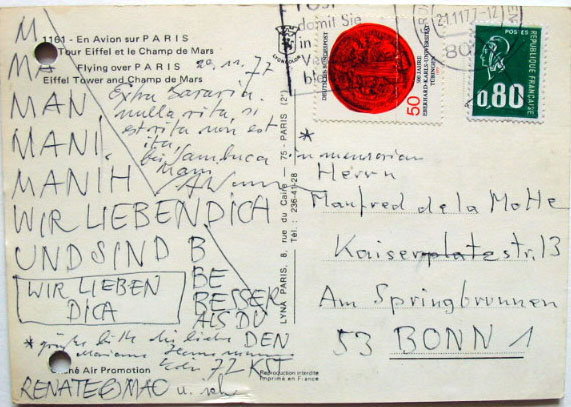 1161 - En Avion sur PARIS
Tour Eiffel et le Champ de Mars
Flying over PARIS
Eiffel Tower and Champ de Mars
20.11.77
M
MA
MAN
MANI
MANIH
WIR LIEBEN DICA
UND SIND B
BE
BESSER
ALS DU
DEN
WIR LIEBEN
DICA
Extra Bavaria
nulla vita, si
est vita non est
ita,
bei Sambuca
* in memoriam
die liebe
72 KST
RENATE @ MAC u.
né Air Promotion
Reproduction interdite
Imprimé en France
LYNA PARIS, 8, rue du Caire — 75 - PARIS (2e)
Tél. : 236-41-28
damit Sie
in
ble
21.11.77-12
80
DEUTSCHE BUNDESPOST
500 JAHRE
EBERHARD-KARLS-UNIVERSITÄT
TÜBINGEN
50
POSTES
0,80
REPUBLIQUE FRANÇAISE
Herrn
Manfred de la Motte
Kaiserplatzstr. 13
Am Springbrunnen
53 BONN 1